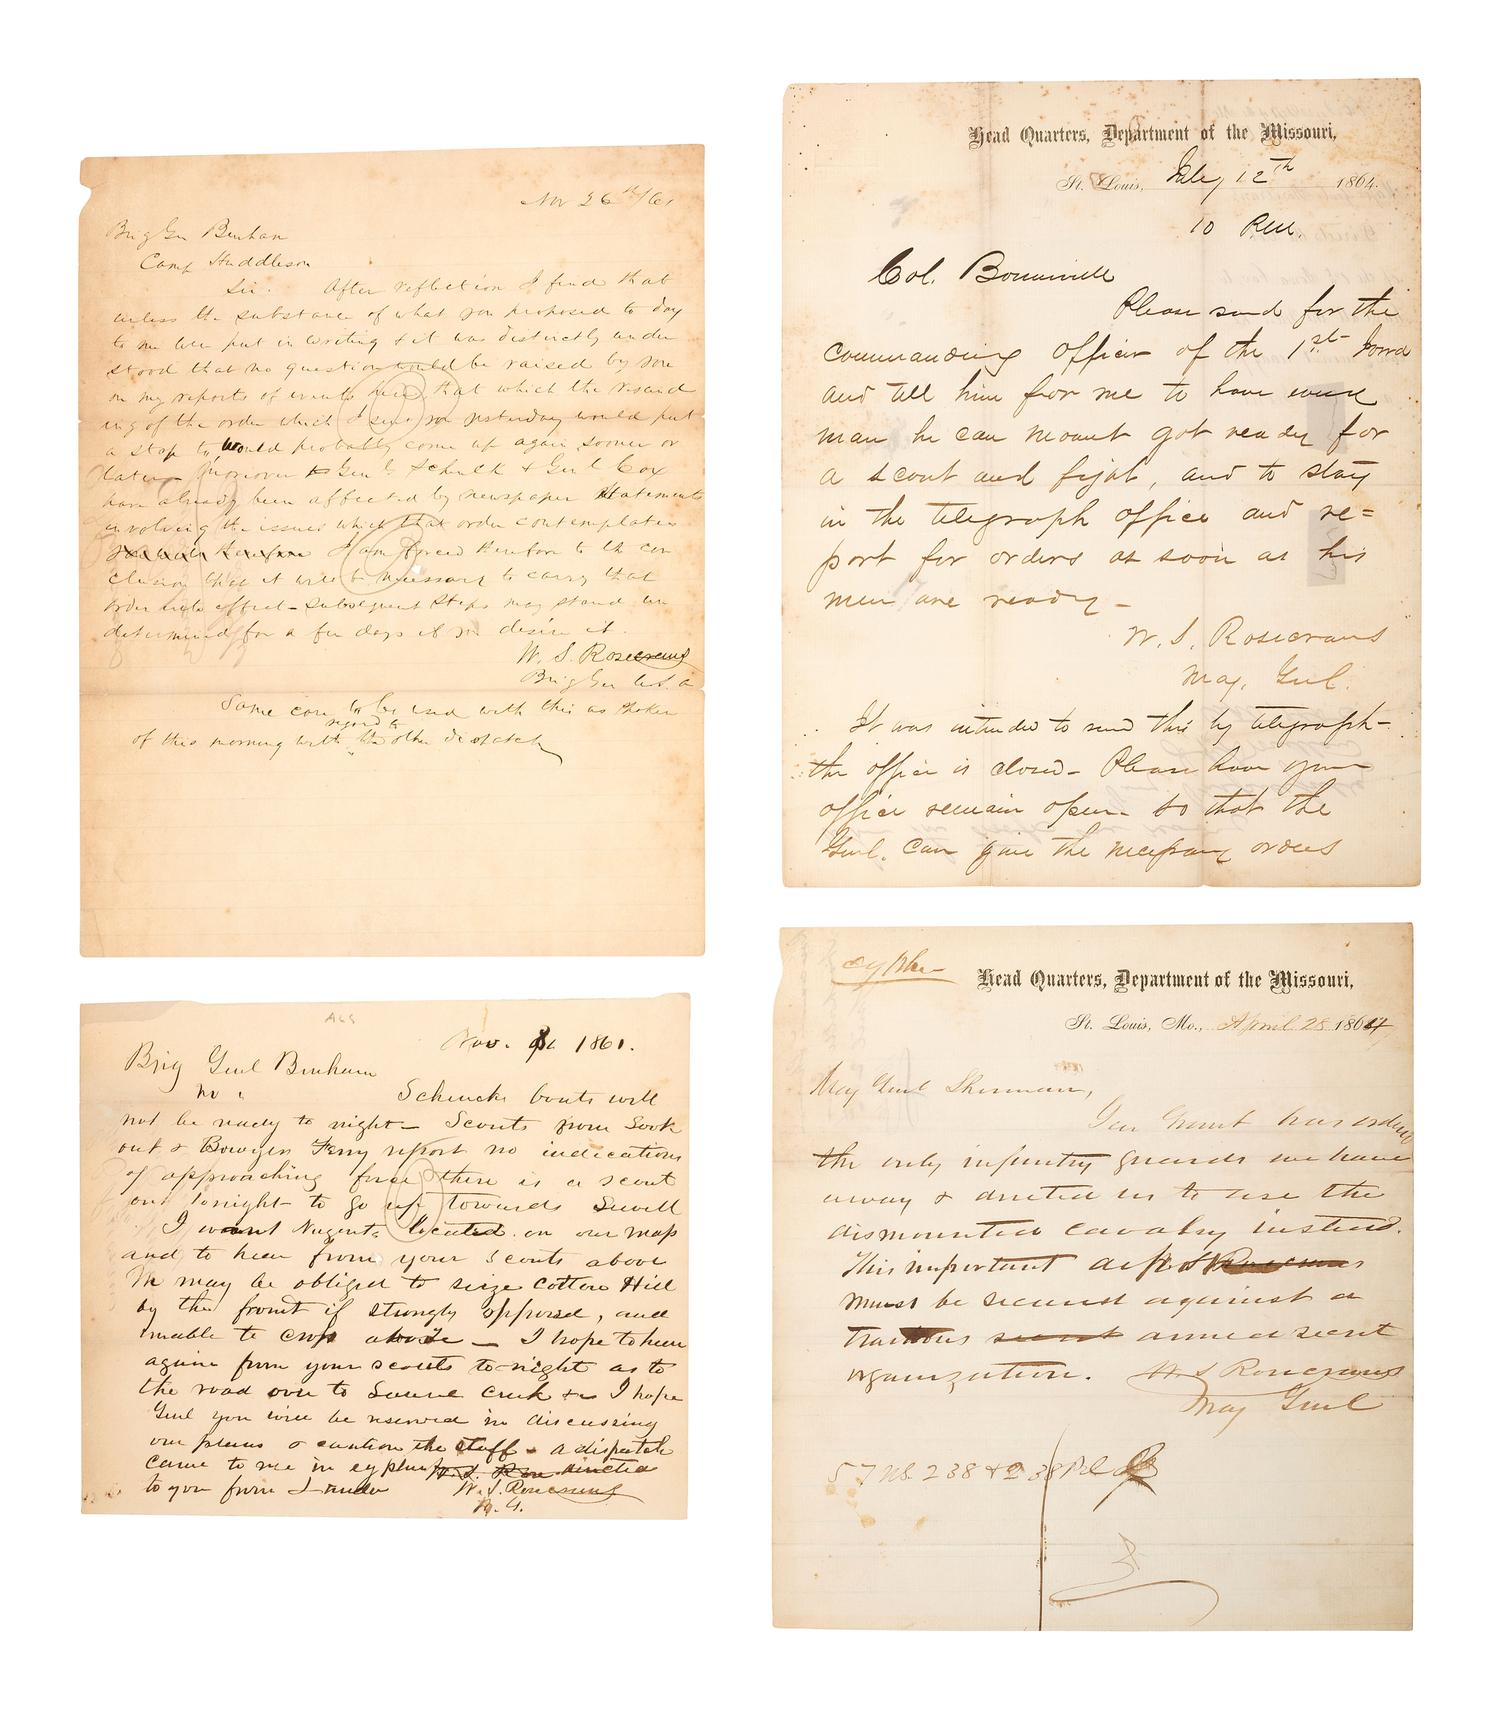 Nov 26th/61
Brig Gen Benham
Camp Huddleson
Sir. After reflection I find that
unless the substance of what you proposed to day
to me were put in writing & it was distinctly under
stood that no question would be raised by you
on my reports of events that which the
ing of the order which I sent you yesterday would put
a stop to, would probably come up again sooner or
later moreover Gen Schenck & Genl Cox
have already been affected by newspaper statements
involving the issues which that order contemplates
I am forced therefore to the con
clusion that it will be necessary to carry that
order into effect - subsequent steps may stand un
determined for a few days if you desire it.
W. S. Rosecrans
Brig Gen U.S.A
Same care to be used with this as
regard to
of this morning with the other dispatch
ALS
Nov. 1861.
Brig Genl Benham
Schencks boats will
not be ready to night - Scouts from Look
out & Bowyers Ferry report no indications
of approaching force there is a scout
out tonight to go up towards Sewell
I want Nugents located on our map
and to hear from your scouts above
We may be obliged to seize Cotton Hill
by the front if strongly opposed, and
unable to cross above - I hope to hear
again from your scouts to-night as to
the road over to Creek & I hope
Genl you will be reserved in discussing
our plans & caution the staff - a dispatch
came to me in cypher W. S. Rose directed
to you from
W. S. Rosecrans
B. G.
Head Quarters, Department of the Missouri,
St. Louis, July 12th 1864.
10 P.M.
Col. Bonneville
Please send for the
commanding officer of the 1st Iowa
and tell him for me to have every
man he can mount got ready for
a scout and fight, and to stay
in the telegraph office and re=
port for orders as soon as his
men are ready -
W. S. Rosecrans
Maj. Genl.
It was intended to send this by telegraph-
the office is closed - Please have your
office remain open - so that the
Genl. can give the necessary orders
cypher
Head Quarters, Department of the Missouri,
St. Louis, Mo., April 28 1864
Maj Genl Sherman,
Gen Grant has ordered
the only infantry guards we have
away & directed us to use the
dismounted cavalry instead.
This important depot Rosecrans
must be secured against a
traitorous secret armed secret
organization. W S Rosecrans
Maj Genl